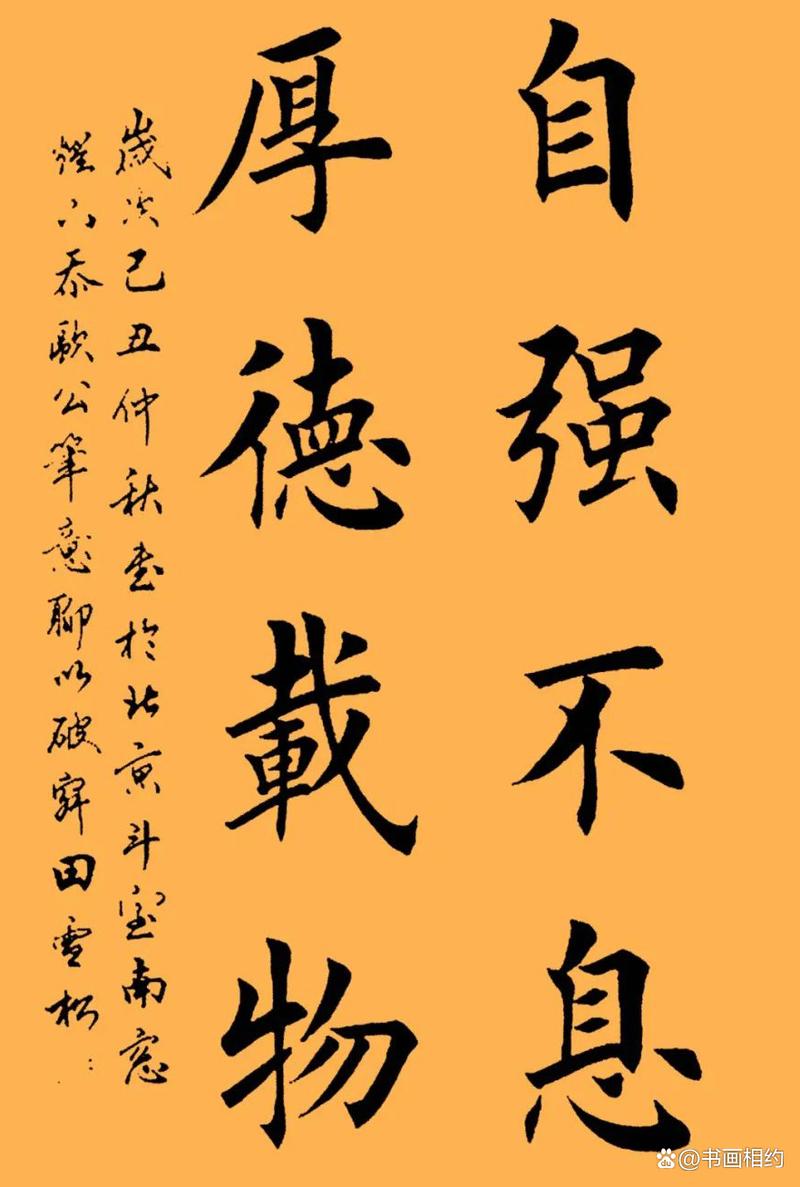 自强不息
厚德載物
歲次己丑仲秋書於北京斗室南窓
燈下忝歐公筆意聊以破寂田雪松
@书画相约